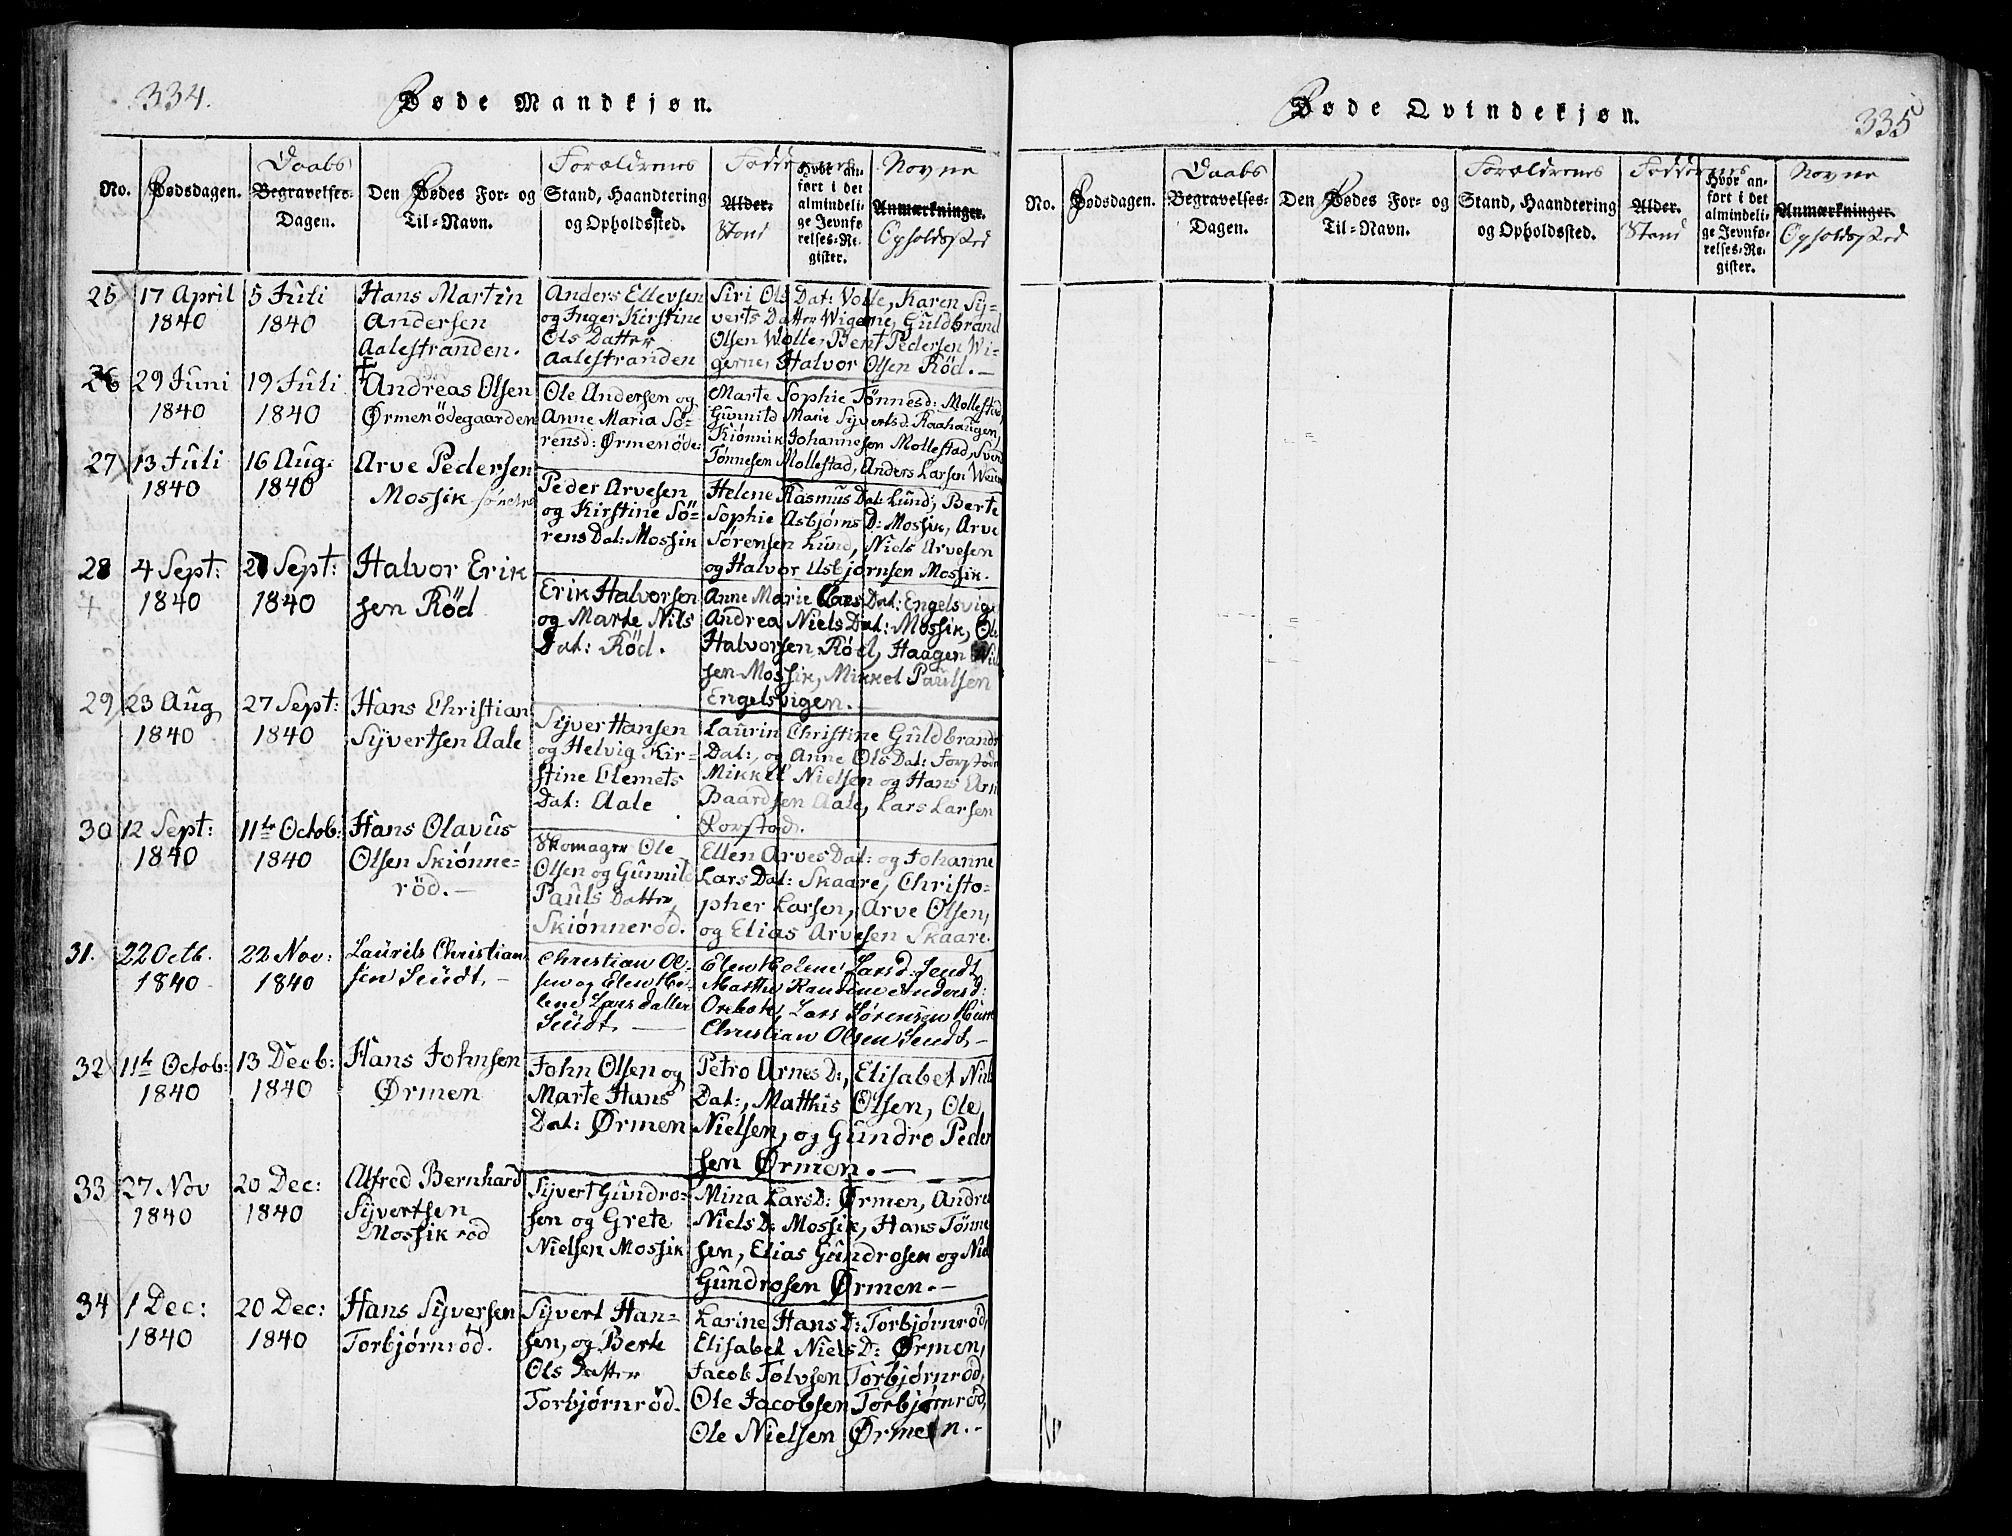 334.
Føde Mandkjøn.
No.
Fødsdagen.
Daabs
Begravelses-
Dagen.
Den Fødes For- og
Til-Navn.
Forældrenes
Stand, Haandtering
og Opholdssted.
Alder.
Stand
Hvor an-
ført i det
almindeli-
ge Jevnfø-
relses-Re-
gister.
Navne
Anmærkninger.
Opholdssted
25
17 April
1840
5 Juli
1840
Hans Martin
Andersen
Aalestranden.
Anders Ellevsen
og Inger Kirstine
Ols Datter
Aalestranden
Siri Ols Dat: Volle, Karen Sy-
verts Datter Wigerne, Guldbrand
Olsen Wolle, Bent Pedersen Wi-
gerne, Halvor Olsen Röd. -
26
29 Juni
1840
19 Juli
1840
Andreas Olsen
Ørmenödegaarden
Ole Andersen og
Anne Maria Sö-
rensd: Ørmenöde:
Marte Sophie Tönnesd: Mollestad
Gunnild Marie Syvertsd: Raahaugen,
Kiönnik Johannesen Mollestad, Svend
Tönnesen Mollestad, Anders Larsen
27
13 Juli
1840
16 Aug:
1840
Arve Pedersen
Mossik
Peder Arvesen
og Kirstine Sö-
rens Dat: Mossik
Helene Rasmus Dat: Lund, Berte
Sophie Asbjörns D: Mossik, Arve
Sörensen Lund, Niels Arvesen
og Halvor Asbjörnsen Mossik.
28
4 Sept:
1840
Sept:
1840
Halvor Erik
sen Röd
Erik Halvorsen
og Marte Nils
Dat: Röd.
Anne Marie Lars Dat: Engelsvigen
Andrea Niels Dat: Mossik, Ole
Halvorsen Röd, Haagen Niel
sen Mossik, Mikkel Paulsen
Engelsvigen. -
29
23 Aug
1840
27 Sept:
1840
Hans Christian
Syvertsen Aale
Syver Hansen
og Helvig Kir-
stine Clemets
Dat: Aale
Laurin Christine Guldbrands
Dat:, og Anne Ols Dat: Forstad
Mikkel Nielsen og Hans Arn
Baardsen Aale, Lars Larsen
Forstad.
30
12 Sept:
1840
11te Octob:
1840
Hans Olavus
Olsen Skiönne-
röd. -
Skomager Ole
Olsen og Gunnild
Pauls Datter,
Skiönneröd.
Ellen Arves Dat: og Johanne
Lars Dat: Skaare, Christo-
pher Larsen, Arve Olsen,
og Elias Arvesen Skaare.
31.
22 Octb.
1840
22 Nov:
1840
Laurits Christian
sen Sundt. -
Christian Ol-
sen og Elen He-
lene Larsdatter
Sundt. -
Elen Helene Larsd: Sundt,
Marthe Andersd:
Lars Sörensen
Christian Olsen Sundt. -
32
11te Octob:
1840
13 Decb:
1840
Hans Johnsen
Ørmen
John Olsen og
Marte Hans
Dat: Ørmen
Petro Arnes D:, Elisabet Niels
Dat:, Matthis Olsen, Ole
Nielsen, og Gundro Peder
sen Ørmen. -
33
27 Nov
1840
20 Dec:
1840
Alfred Bernhard
Syvertsen
Mossik röd
Syvert Gundro-
sen og Grete
Nielsen Mossik
Mina Lars D: Ørmen, Andrea
Niels D: Mossik, Hans Tönne
sen, Elias Gundrosen og Niel
Gundrosen Ørmen. -
34
1 Dec:
1840
20 Dec:
1840
Hans Syversen
Torbjørnröd.
Syvert Han-
sen, og Berte
Ols Datter
Torbjørnröd.
Karine Hans D: Torbjørnröd,
Elisabet Niels D: Ørmen,
Jacob Tolvsen Torbjørnröd,
Ole Jacobsen Torbjørnröd,
Ole Nielsen Ørmen. -
Føde Qvindekjøn.
335
No.
Fødsdagen.
Daabs
Begravelses-
Dagen.
Den Fødes For- og
Til-Navn.
Forældrenes
Stand, Haandtering
og Opholdssted.
Alder.
Stand
Hvor an-
ført i det
almindeli-
ge Jevnfø-
relses-Re-
gister.
Navne
Anmærkninger.
Opholdssted